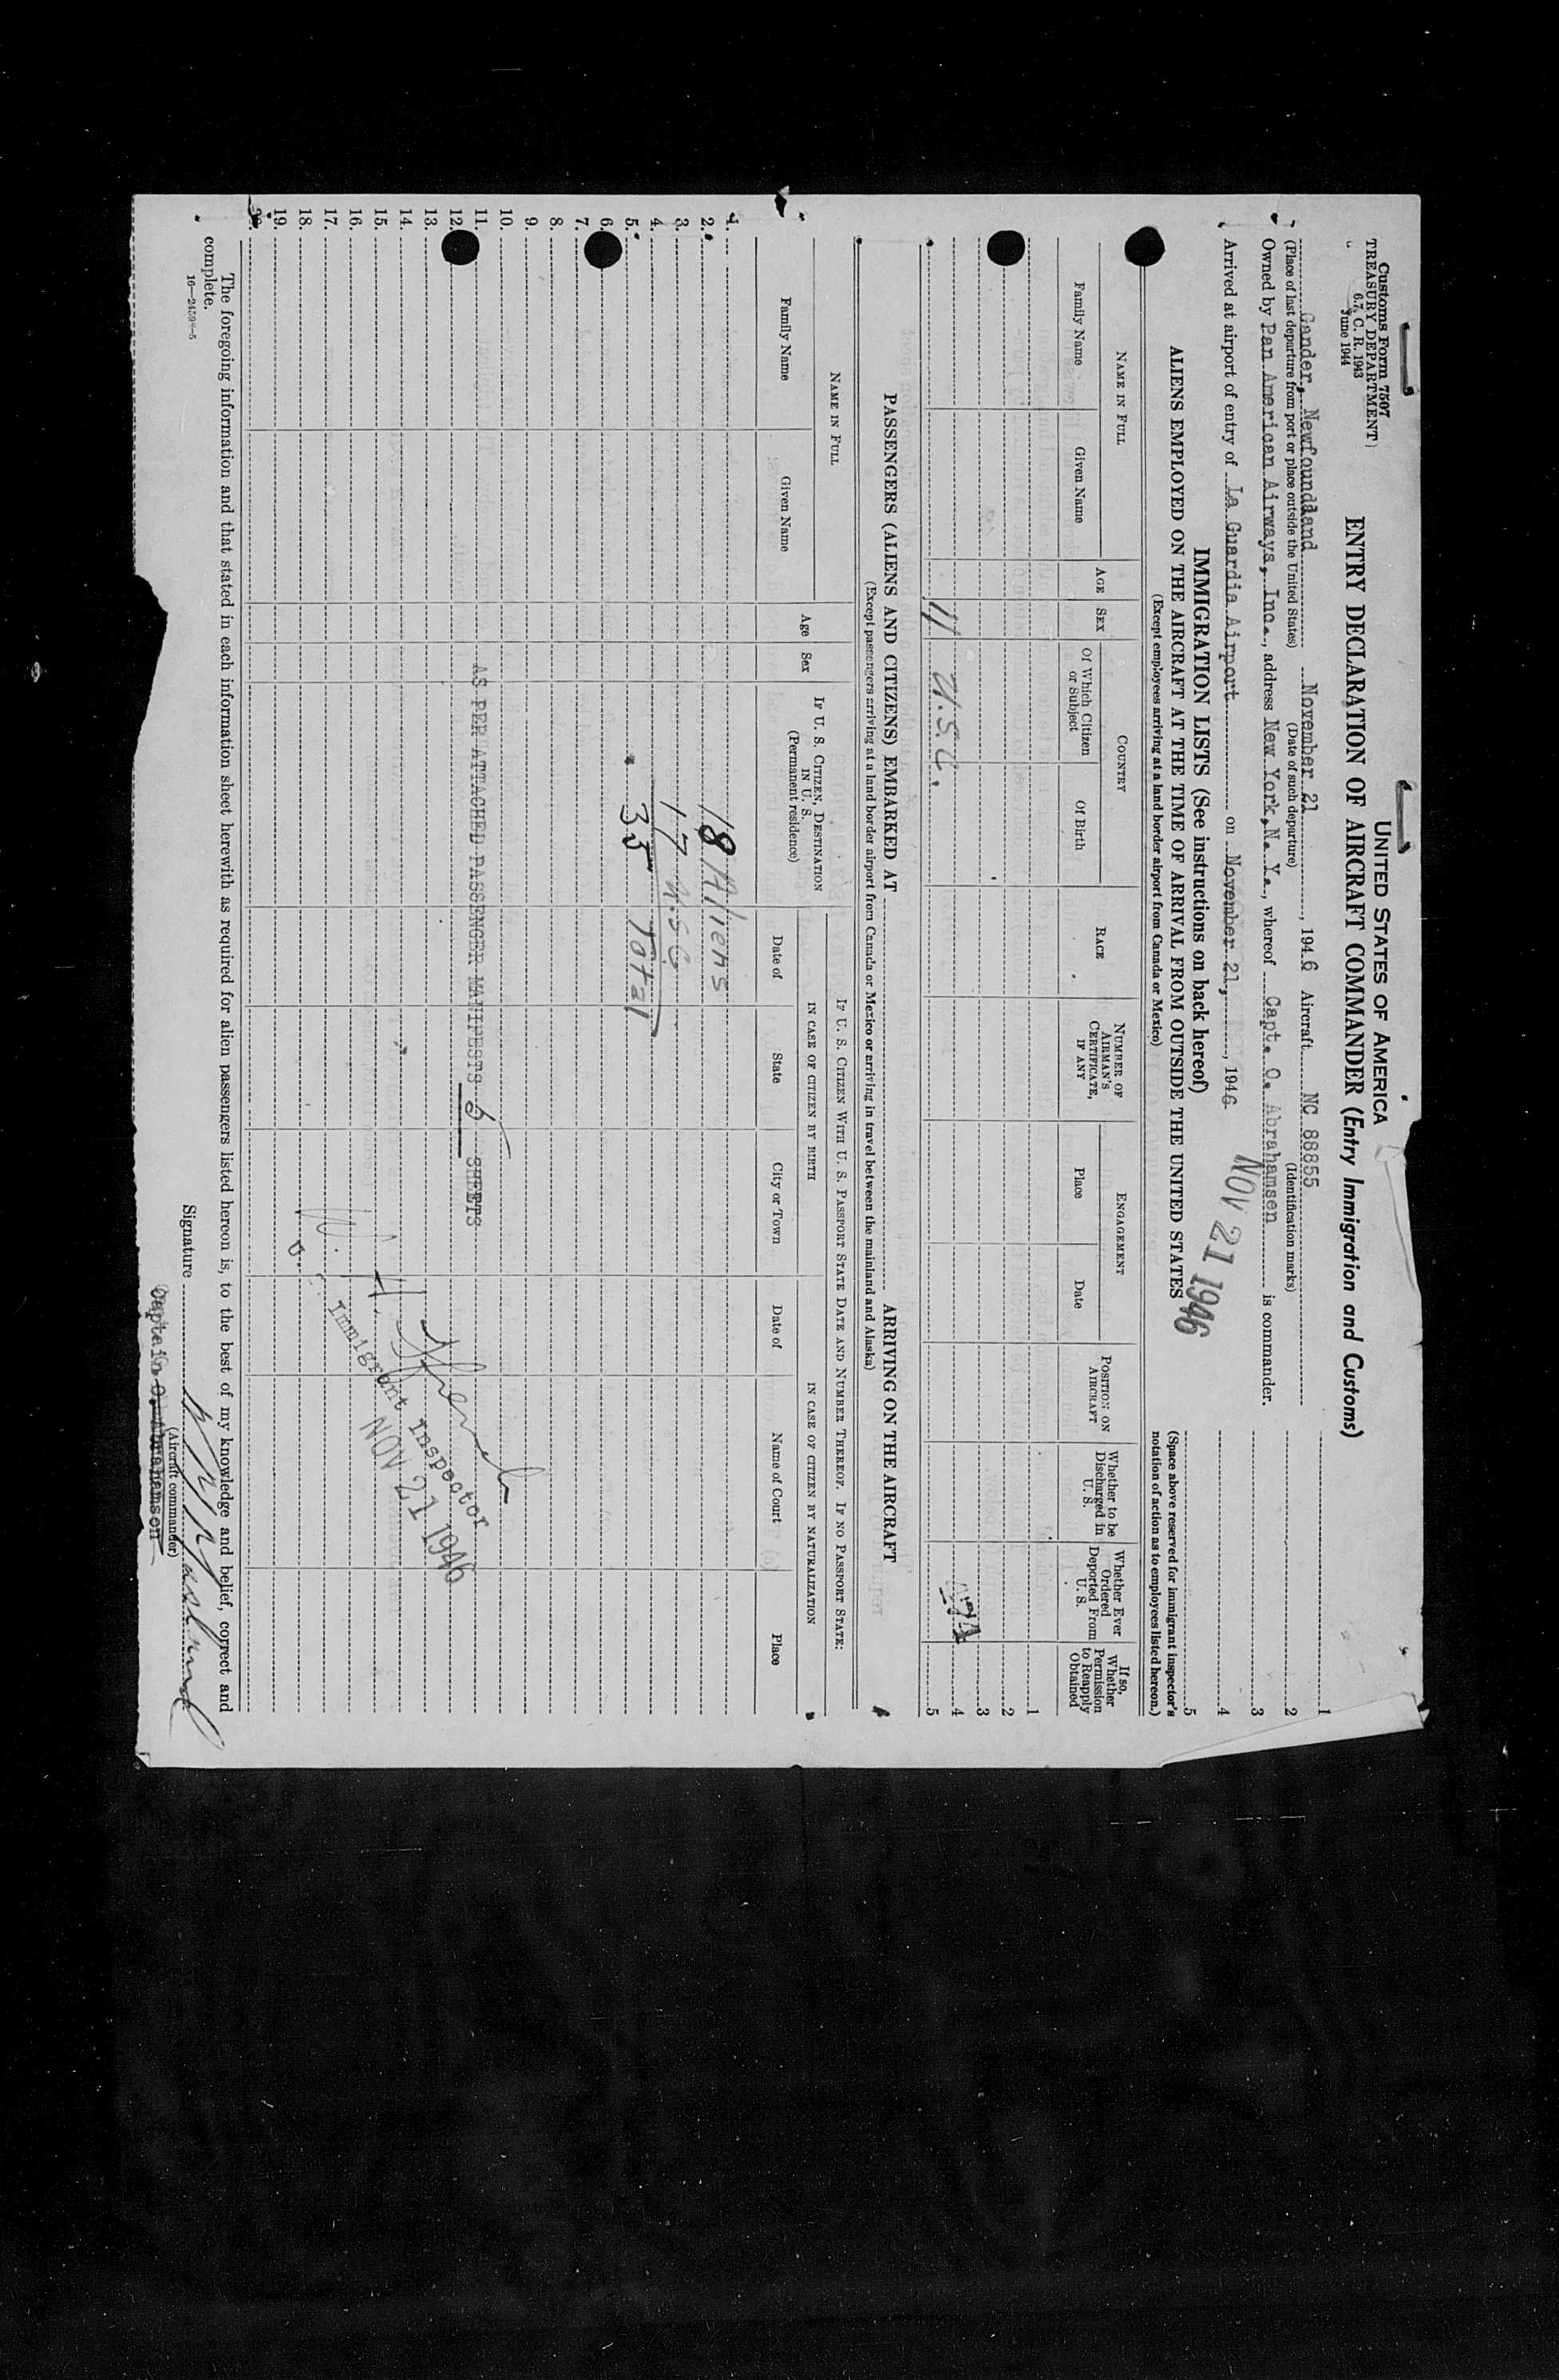 Customs Form 7507
TREASURY DEPARTMENT
6.7, C. R. 1943
June 1944
UNITED STATES OF AMERICA
ENTRY DECLARATION OF AIRCRAFT COMMANDER (Entry Immigration and Customs)
Gander, Newfoundland November 21, 1946 Aircraft NC 88855
(Place of last departure from port or place outside the United States) (Date of such departure) (Identification marks)
Owned by Pan American Airways, Inc., address New York, N. Y., whereof Capt. O. Abrahamsen is commander.
Arrived at airport of entry of La Guardia Airport on November 21, 1946
NOV 21 1946
1
2
3
4
5
(Space above reserved for immigrant inspector's notation of action as to employees listed hereon.)
IMMIGRATION LISTS (See instructions on back hereof)
ALIENS EMPLOYED ON THE AIRCRAFT AT THE TIME OF ARRIVAL FROM OUTSIDE THE UNITED STATES
(Except employees arriving at a land border airport from Canada or Mexico)
NAME IN FULL AGE SEX COUNTRY RACE NUMBER OF AIRMAN'S CERTIFICATE, IF ANY ENGAGEMENT POSITION ON AIRCRAFT Whether to be Discharged in U. S. Whether Ever Ordered Deported From U. S. If so, Whether Permission to Reapply Obtained
Family Name Given Name Of Which Citizen or Subject Of Birth Place Date
1
2
3
4
11 U.S.C. 5
PASSENGERS (ALIENS AND CITIZENS) EMBARKED AT ARRIVING ON THE AIRCRAFT
(Except passengers arriving at a land border airport from Canada or Mexico or arriving in travel between the mainland and Alaska)
NAME IN FULL Age Sex IF U. S. CITIZEN, DESTINATION IN U. S. (Permanent residence) IF U. S. CITIZEN WITH U. S. PASSPORT STATE DATE AND NUMBER THEREOF. IF NO PASSPORT STATE:
IN CASE OF CITIZEN BY BIRTH IN CASE OF CITIZEN BY NATURALIZATION
Family Name Given Name Date of State City or Town Date of Name of Court Place
1.
2. 18 Aliens
3.
4. 17 U.S.C.
5. 35 Total
6.
7.
8.
9.
10.
11. AS PER ATTACHED PASSENGER MANIFESTS 5 SHEETS
12.
13.
14.
15.
16.
17.
18.
19.
20.
Immigrant Inspector
NOV 21 1946
The foregoing information and that stated in each information sheet herewith as required for alien passengers listed hereon is, to the best of my knowledge and belief, correct and
complete.
16—24598-5
Signature
(Aircraft commander)
Captain O. Abrahamsen